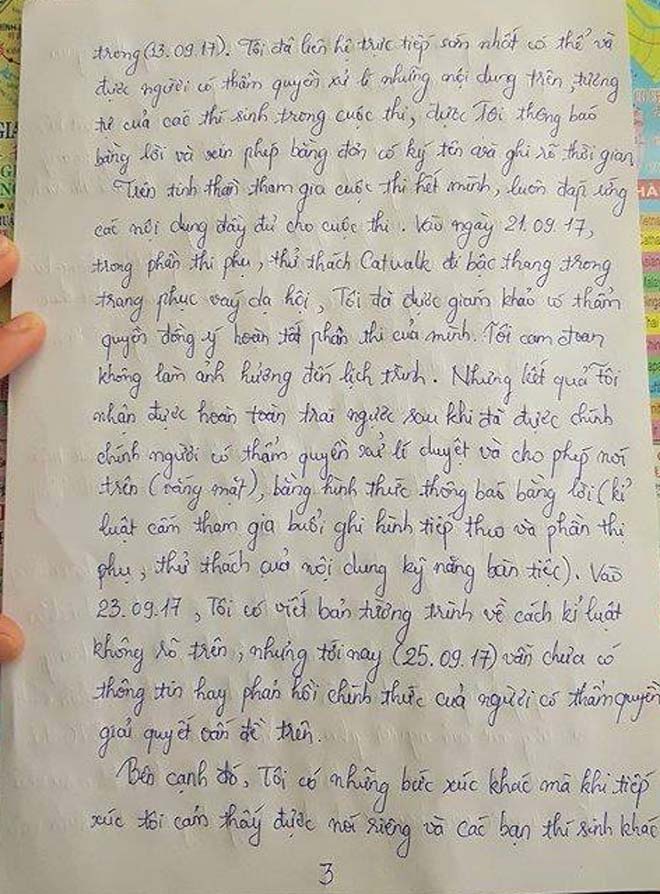 trong (13.09.17). Tôi đã liên hệ trực tiếp sớm nhất có thể và
được người có thẩm quyền xử lí những nội dung trên, tương
tự của các thí sinh trong cuộc thi, được Tôi thông báo
bằng lời và xin phép bằng đơn có ký tên và ghi rõ thời gian
Trên tinh thần tham gia cuộc thi hết mình, luôn đáp ứng
các nội dung đầy đủ cho cuộc thi. Vào ngày 21.09.17,
trong phần thi phụ, thử thách Catwalk đi bậc thang trong
trang phục váy dạ hội, Tôi đã được giám khảo có thẩm
quyền đồng ý hoàn tất phần thi của mình. Tôi cam đoan
không làm ảnh hưởng đến lịch trình. Nhưng kết quả Tôi
nhận được hoàn toàn trái ngược sau khi đã được chính
chính người có thẩm quyền xử lí duyệt và cho phép nói
trên (vắng mặt), bằng hình thức thông báo bằng lời (kỉ
luật cấm tham gia buổi ghi hình tiếp theo và phần thi
phụ, thử thách của nội dung kỹ năng bàn tiệc). Vào
23.09.17, Tôi có viết bản tường trình về cách kỉ luật
không rõ trên, nhưng tới nay (25.09.17) vẫn chưa có
thông tin hay phản hồi chính thức của người có thẩm quyền
giải quyết vấn đề trên.
Bên cạnh đó, Tôi có những bức xúc khác mà khi tiếp
xúc tôi cảm thấy được nói riêng và các bạn thí sinh khác
3